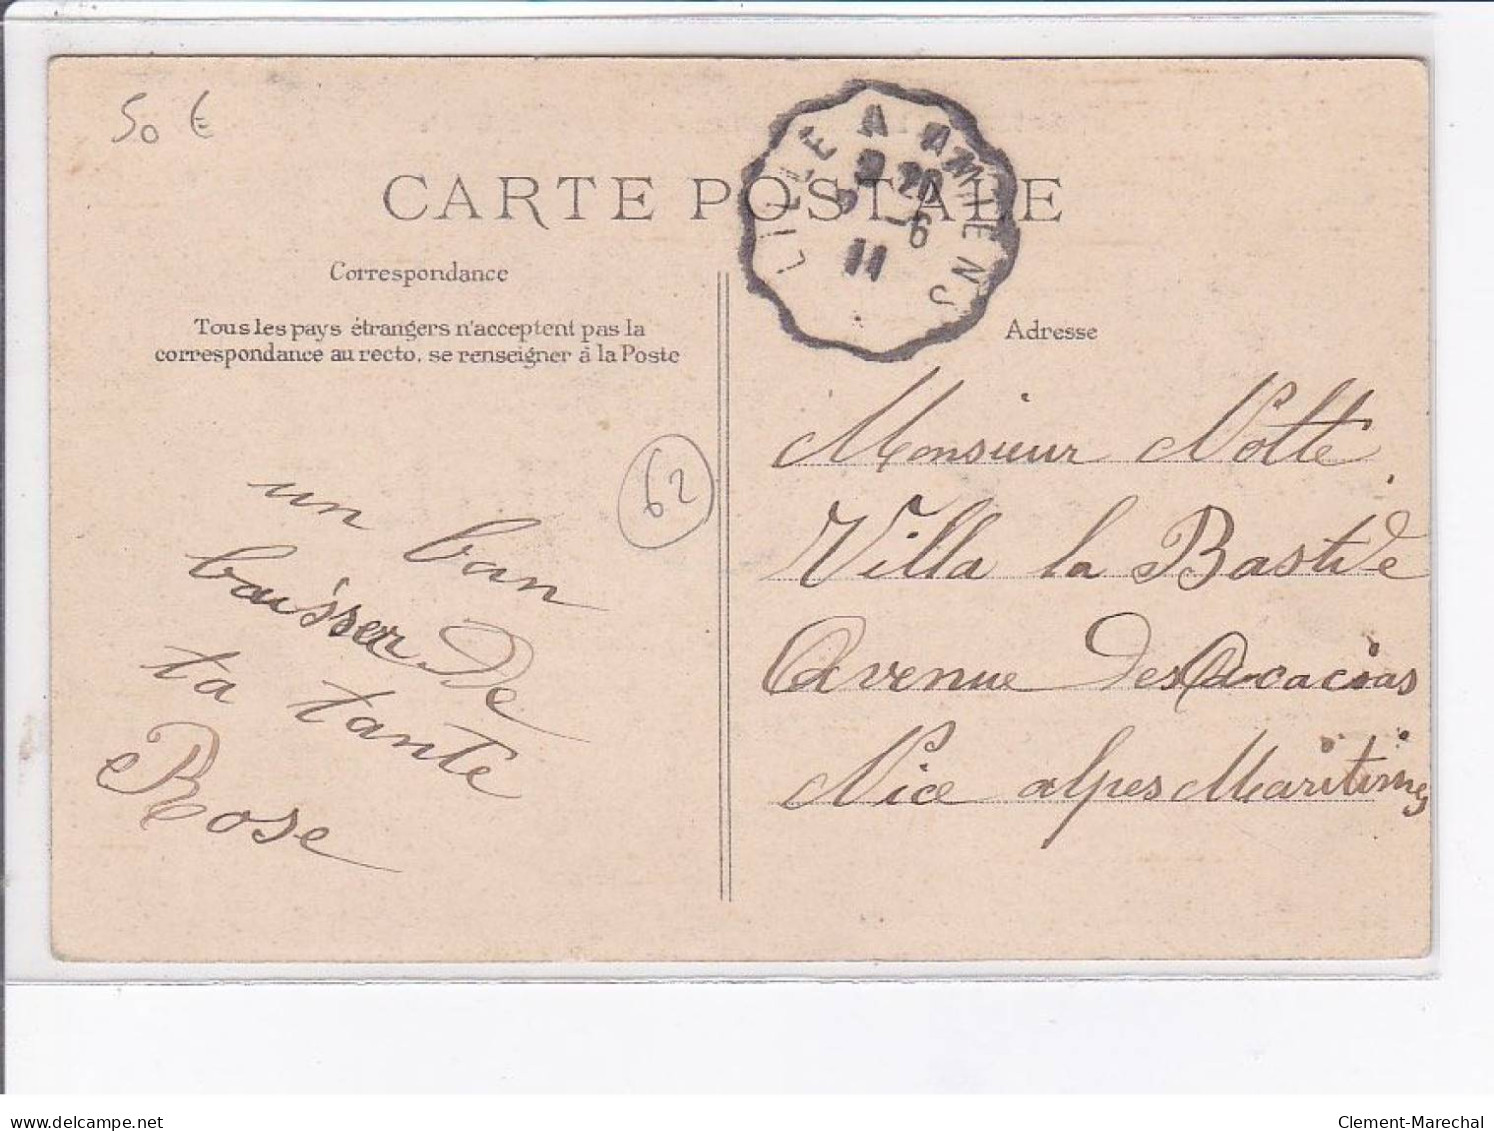 50 €
CARTE POSTALE
LILLE A AMIENS
20
-6
11
Correspondance
Tous les pays étrangers n'acceptent pas la
correspondance au recto, se renseigner à la Poste
Adresse
62
un bon
baisser De
ta tante
Rose
Monsieur Nolte
Villa la Bastide
Avenue Des Acacias
Nice alpes Maritimes
delcampe.net
Clement-Marechal